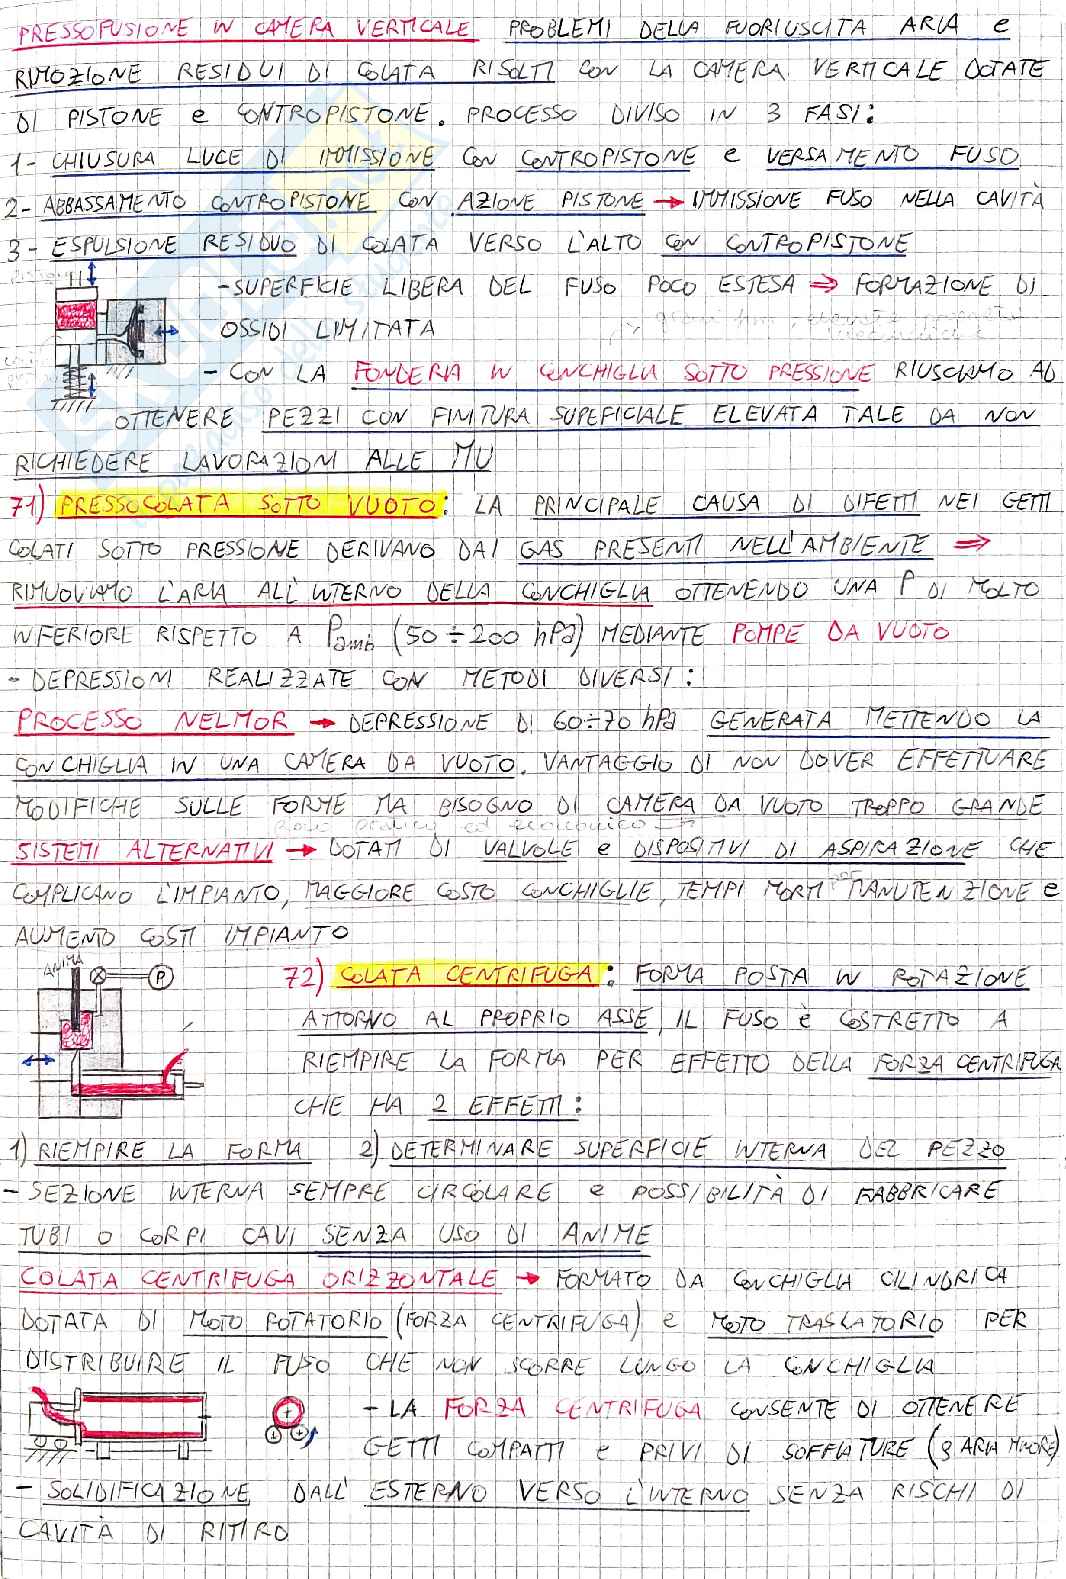 PRESSOFUSIONE IN CAMERA VERTICALE PROBLEMI DELLA FUORIUSCITA ARIA e
RIMOZIONE RESIDUI DI COLATA RISOLTI CON LA CAMERA VERTICALE DOTATE
DI PISTONE e CONTROPISTONE. PROCESSO DIVISO IN 3 FASI:
1- CHIUSURA LUCE DI IMMISSIONE CON CONTROPISTONE e VERSAMENTO FUSO
2- ABBASSAMENTO CONTROPISTONE CON AZIONE PISTONE → IMMISSIONE FUSO NELLA CAVITÀ
3- ESPULSIONE RESIDUO DI COLATA VERSO L'ALTO CON CONTROPISTONE
-SUPERFICIE LIBERA DEL FUSO POCO ESTESA ⇒ FORMAZIONE DI
OSSIDI LIMITATA
- CON LA FONDERIA IN CONCHIGLIA SOTTO PRESSIONE RIUSCIAMO AD
OTTENERE PEZZI CON FINITURA SUPEFICIALE ELEVATA TALE DA NON
RICHIEDERE LAVORAZIONI ALLE MU
71) PRESSOCOLATA SOTTO VUOTO: LA PRINCIPALE CAUSA DI DIFETTI NEI GETTI
COLATI SOTTO PRESSIONE DERIVANO DAI GAS PRESENTI NELL'AMBIENTE ⇒
RIMUOVIAMO L'ARIA ALL'INTERNO DELLA CONCHIGLIA OTTENENDO UNA P DI MOLTO
INFERIORE RISPETTO A Pamb (50÷200 hPa) MEDIANTE POMPE DA VUOTO
- DEPRESSIONI REALIZZATE CON METODI DIVERSI:
PROCESSO NELMOR → DEPRESSIONE DI 60÷70 hPa GENERATA METTENDO LA
CONCHIGLIA IN UNA CAMERA DA VUOTO. VANTAGGIO DI NON DOVER EFFETTUARE
MODIFICHE SULLE FORME MA BISOGNO DI CAMERA DA VUOTO TROPPO GRANDE
poco pratico ed economico
SISTEMI ALTERNATIVI → DOTATI DI VALVOLE e DISPOSITIVI DI ASPIRAZIONE CHE
COMPLICANO L'IMPIANTO, MAGGIORE COSTO CONCHIGLIE, TEMPI MORTI PER MANUTENZIONE e
AUMENTO COSTI IMPIANTO
ANIMA
P
72) COLATA CENTRIFUGA: FORMA POSTA IN ROTAZIONE
ATTORNO AL PROPRIO ASSE, IL FUSO è COSTRETTO A
RIEMPIRE LA FORMA PER EFFETTO DELLA FORZA CENTRIFUGA
CHE HA 2 EFFETTI:
1) RIEMPIRE LA FORMA 2) DETERMINARE SUPERFICIE INTERNA DEL PEZZO
- SEZIONE INTERNA SEMPRE CIRCOLARE e POSSIBILITÀ DI FABBRICARE
TUBI O CORPI CAVI SENZA USO DI ANIME
COLATA CENTRIFUGA ORIZZONTALE → FORMATO DA CONCHIGLIA CILINDRICA
DOTATA DI MOTO ROTATORIO (FORZA CENTRIFUGA) e MOTO TRASLATORIO PER
DISTRIBUIRE IL FUSO CHE NON SCORRE LUNGO LA CONCHIGLIA
- LA FORZA CENTRIFUGA CONSENTE DI OTTENERE
GETTI COMPATTI e PRIVI DI SOFFIATURE (ρ ARIA MINORE)
- SOLIDIFICAZIONE DALL'ESTERNO VERSO L'INTERNO SENZA RISCHI DI
CAVITÀ DI RITIRO